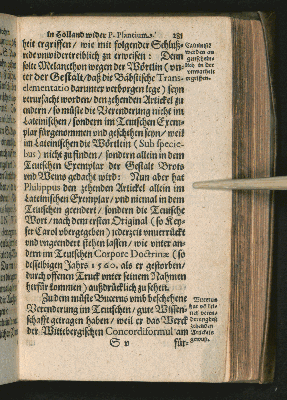 in Holland wider P. Plantium.
281
heit ergriffen / wie mit folgender Schluß-
rede unwidertreiblich zu erweisen: Denn
solte Melancthon wegen der Wörtlin (un-
ter der Gestalt / daß die Bäbstische Trans-
elementatio darunter verborgen lege) seyn
verursacht worden / den zehenden Artickel zu
endern / so müste die Verenderung nicht im
Lateinischen / sondern im Teutschen Exem-
plar fürgenommen und geschehen seyn / weil
im Lateinischen die Wörtlein (Sub specie-
bus) nicht zu finden / sondern allein in dem
Teutschen Exemplar der Gestalt Brots
und Weins gedacht wird: Nun aber hat
Philippus den zehenden Artickel allein im
Lateinischen Exemplar / und niemal in dem
Teutschen geendert / sondern die Teutsche
Wort / nach dem ersten Original (so Key-
ser Carol ubergegeben) jederzeit unverrückt
und ungeendert stehen lassen / wie unter an-
dern im Teutschen Corpore Doctrinæ (so
desselbigen Jahrs 1560. als er gestorben /
durch offenen Truck unter seinem Nahmen
herfür kommen) außdrücklich zu sehen.
Zu dem müste Bucerus umb beschehene
Verenderung im Teutschen / gute Wissen-
schafft getragen haben / weil er das Werck
der Wittebergischen Concordiformul am
S v
für-
werden an
der
ergriffen.
Bucerus
hat
zehenden
Artickels
gewust.